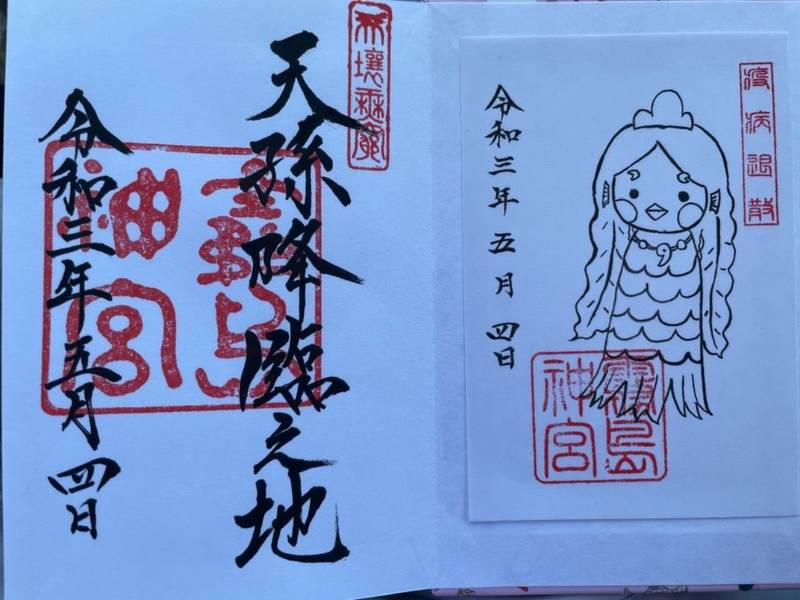 疫病退散
令和三年五月四日
霧島
神宮
天壤無窮
天孫降臨之地
霧島
神宮
令和三年五月四日